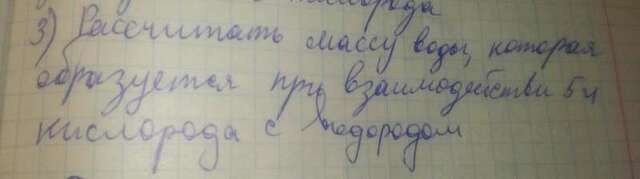 кислорода
3) Рассчитать массу воды, которая
образуется при взаимодействи 5 ч
кислорода с водородом